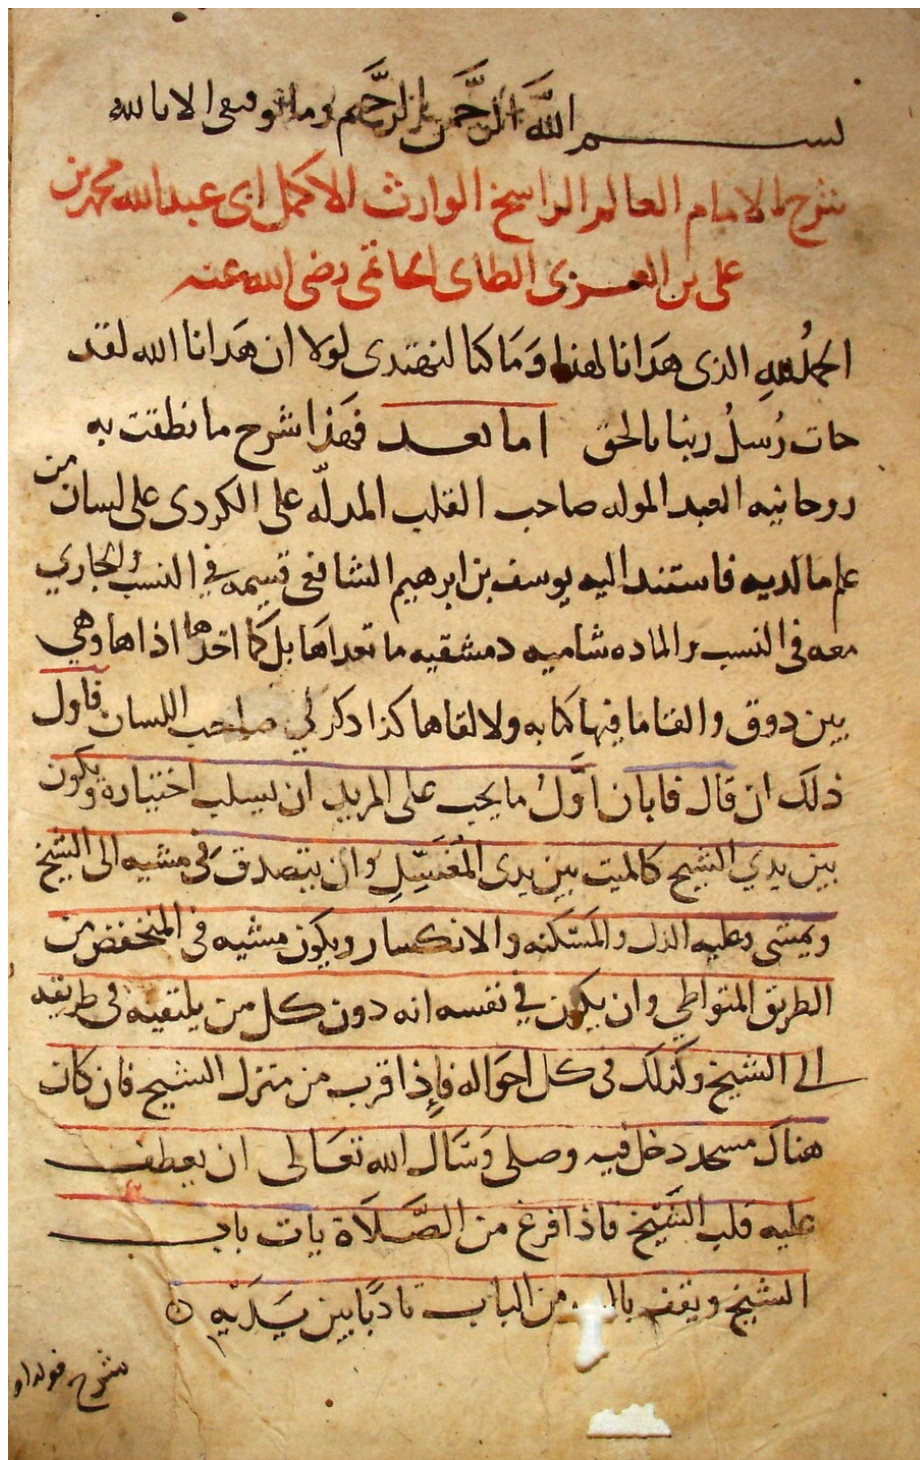 بسم الله الرحمن الرحيم وما توفيقى الا بالله
شرح الامام العالم الراسخ الوارث الاكمل ابى عبد الله محمد بن
على بن العربى الطاى الحاتمى رضى الله عنه
الحمدُ للهِ الذى هَدَانا لهذا وَمَا كنا لنهتدى لولا ان هَدانا الله لقد
جات رُسلُ ربنا بالحق اما بعد فهَذا شرح ما نطقت به
روحانيه العبد الموله صاحب القلب المدلّه على الكردى على لسان من
علم ما لديه فاستند اليه يوسف بن ابرهيم الشافعى قسيمه في النسب والجارى
معه فى النسب الماده شاميه دمشقيه ما تعداهَا بل كما اخذها اذاها وهي
بين ذوق والقا ما فيها كتابه ولا لقاها كذا ذكر لي صاحب اللسان فاول
ذلك ان قال فابان اوَّلُ ما يجب على المريد ان يسلب اختياره ويكون
بين يدي الشيخ كالميت بين يدى المغَسِّلِ وان يتصدق فى مشيه الى الشيخ
ويمشى وعليه الذل والمَسْكنه والانكسار ويكون مشيه فى المنخفض من
الطريق المتواطي وان يكون في نفسه انه دون كل من يلتقيه فى طريقه
الى الشيخ وكذلك فى كل احوَاله فإذا قرب من منزل الشيخ فان كان
هناك مسجد دخل فيه وصلى وَسَال الله تعَالى ان يعطف
عليه قلب الشَّيخ فاذا فرغ من الصَّلَاة يات باب
الشيخ ويقف من الباب تادبًا بين يَدَيْه
شرح